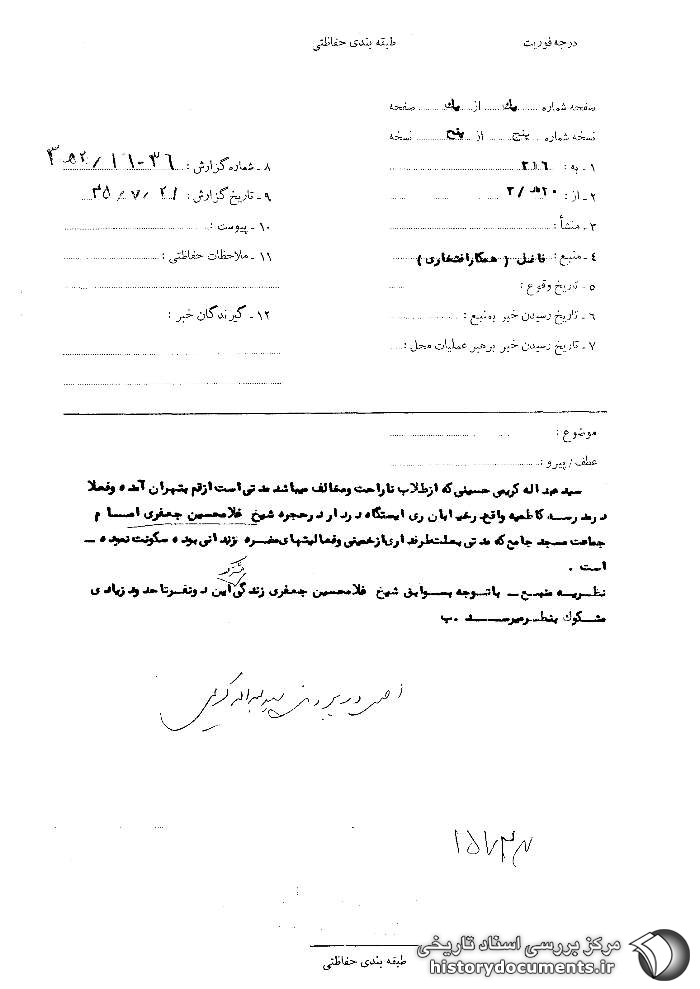 درجه فوریت
طبقه بندی حفاظتی
صفحه شماره یك از یك صفحه
نسخه شماره پنج از پنج نسخه
۱ـ به :
۲ـ از :
۳ـ منشأ :
۴ـ منبع : فاضل ( همکارافتخاری )
۵ـ تاریخ وقوع :
۶ـ تاریخ رسیدن خبر بمنبع :
۷ـ تاریخ رسیدن خبر برهبر عملیات محل :
۸ـ شماره گزارش :
۹ـ تاریخ گزارش :
۱۰ـ پیوست :
۱۱ـ ملاحظات حفاظتی :
۱۲ـ گیرندگان خبر :
موضوع :
عطف / پیرو :
سید عبداله کریمی حسینی که ازطلاب ناراحت ومخالف میباشد مدتی است ازقم بتهران آمده وفعلا
درمدرسه کاظمیه واقع درخیابان ری ایستگاه دردار درحجره شیخ غلامحسین جعفری امام
جماعت مسجد جامع که مدتی بعلت طرفداری ازخمینی وفعالیتهای مضره زندانی بوده سکونت نموده ـ
است .
نظریه منبع ـ باتوجه بسوابق شیخ غلامحسین جعفری زندگی این دونفر تاحدود زیادی
مشکوك بنظر میرسد . ب
سید عبداله کریمی
طبقه بندی حفاظتی
مرکز بررسی اسناد تاریخی
historydocuments.ir